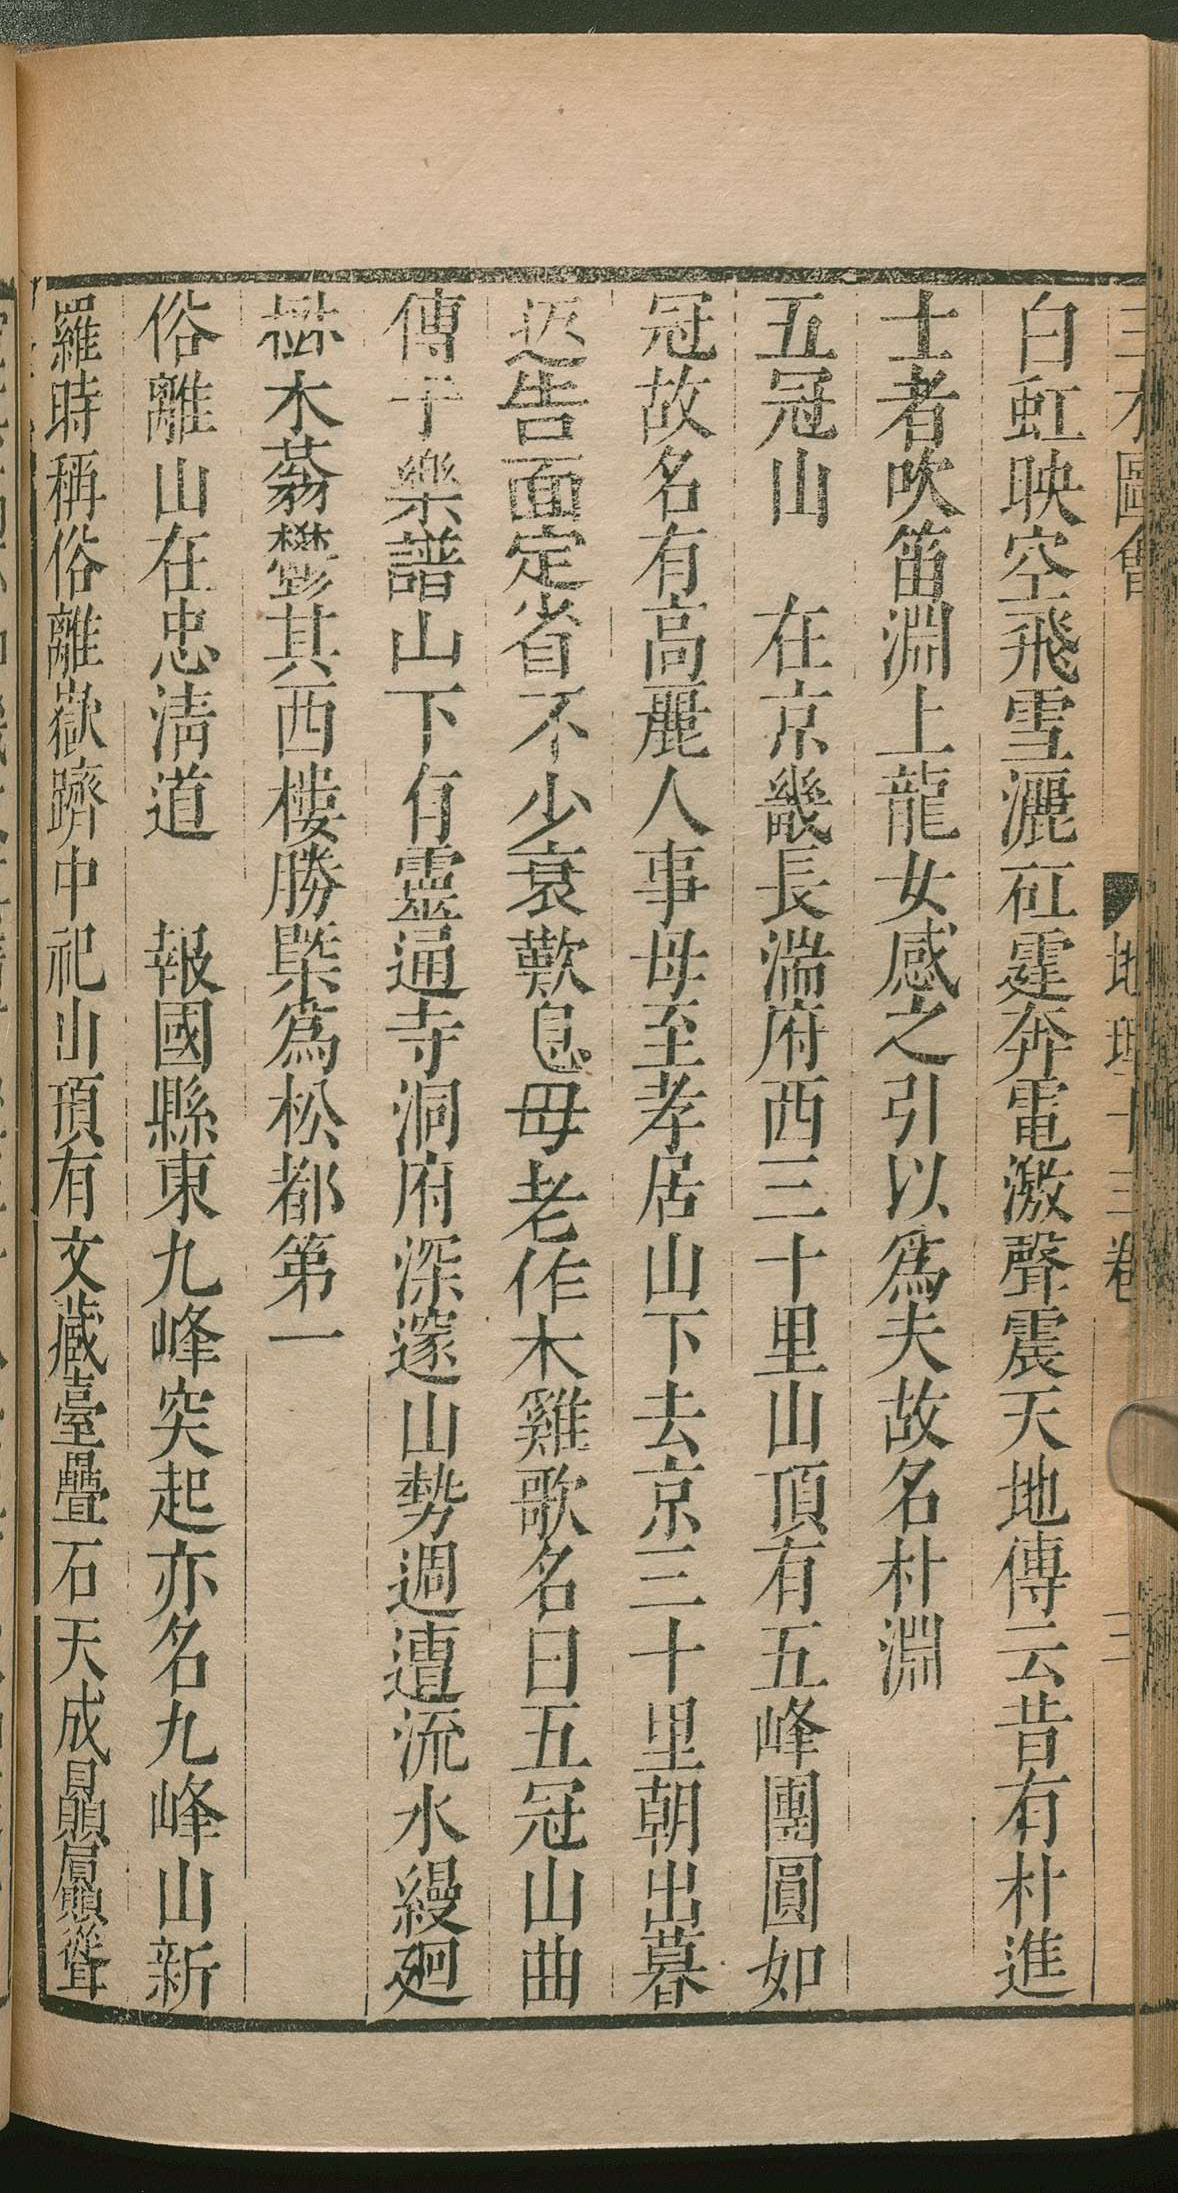 三才圖會 地理十三卷 三
白虹映空飛雪灑矼霆奔電激聲震天地傳云昔有朴進
士者吹笛淵上龍女感之引以爲夫故名朴淵
五冠山 在京畿長湍府西三十里山頂有五峰團圓如
冠故名有高麗人事母至孝居山下去京三十里朝出暮
返告面定省不少衰歎息毋老作木雞歌名曰五冠山曲
傳于樂譜山下有靈通寺洞府深邃山勢週遭流水縵廻
樾木蓊鬱其西樓勝槩爲松都第一
俗離山在忠清道 報國縣東九峰突起亦名九峰山新
羅時稱俗離嶽躋中祀山頂有文藏臺疊石天成贔屭聳